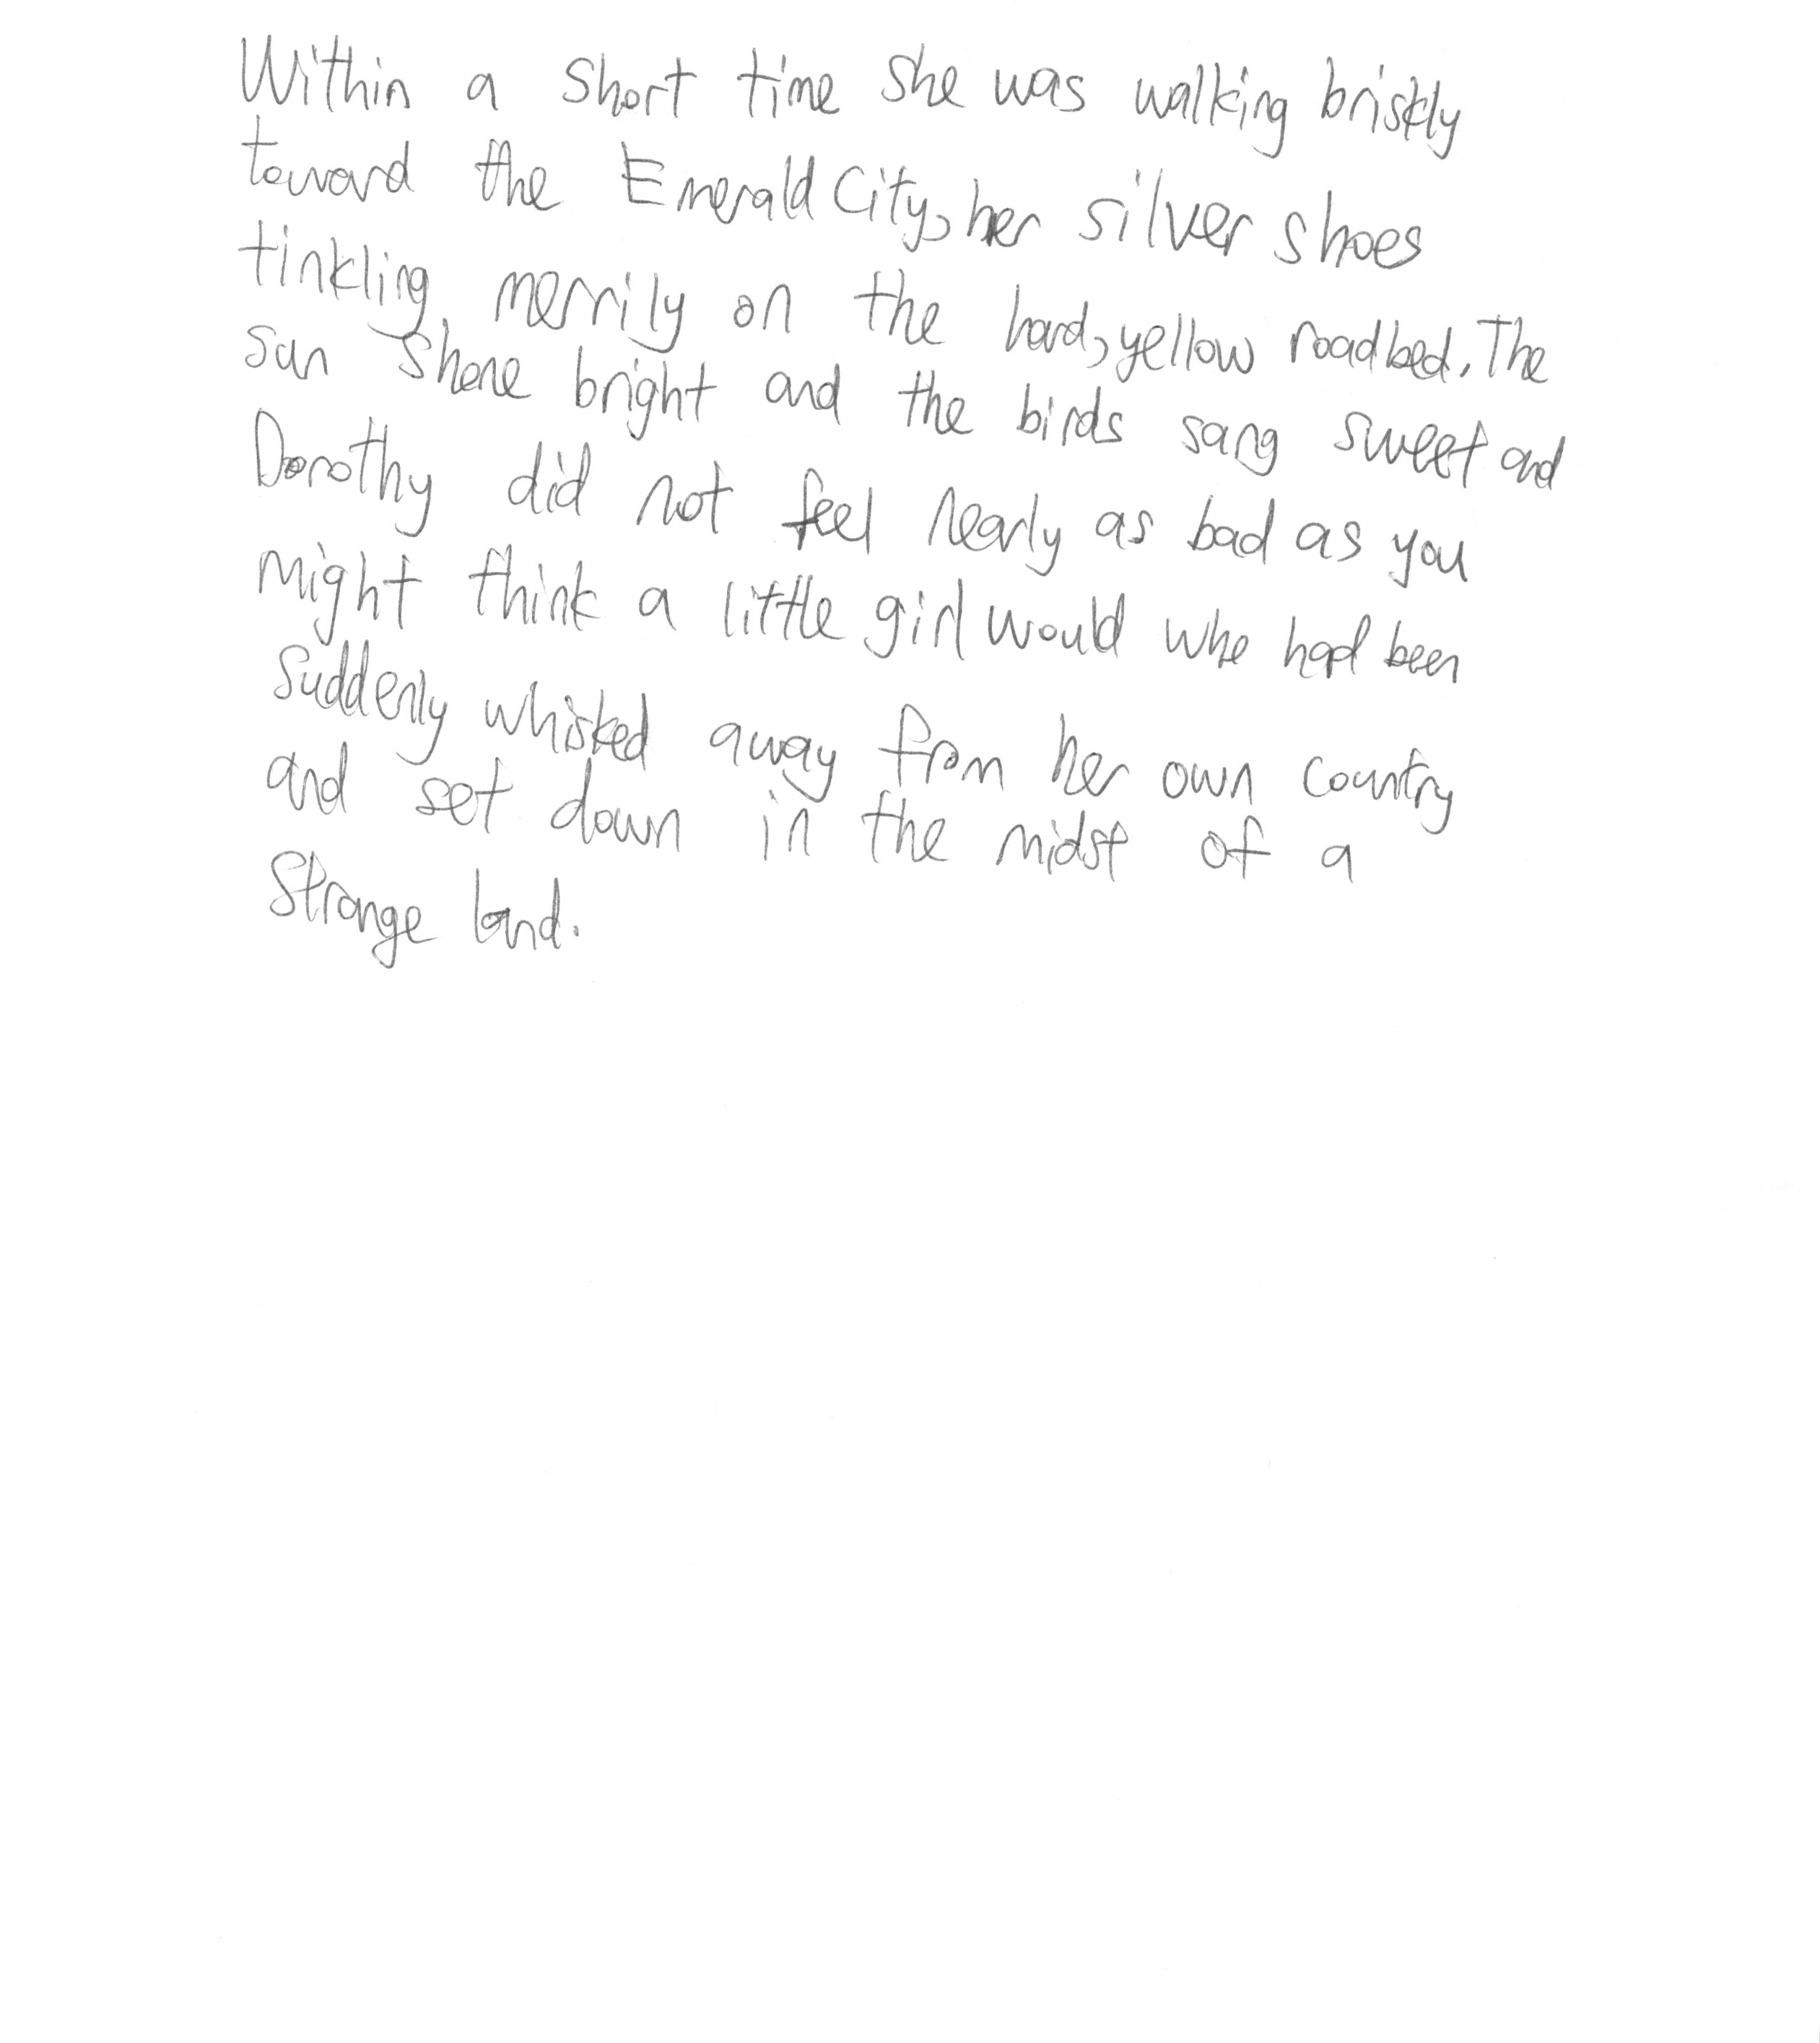 Within a short time she was walking briskly
toward the Emerald City, her silver shoes
tinkling merrily on the hard, yellow roadbed. The
sun shone bright and the birds sang sweet and
Dorothy did not feel nearly as bad as you
might think a little girl would who had been
suddenly whisked away from her own country
and set down in the midst of a
strange land.